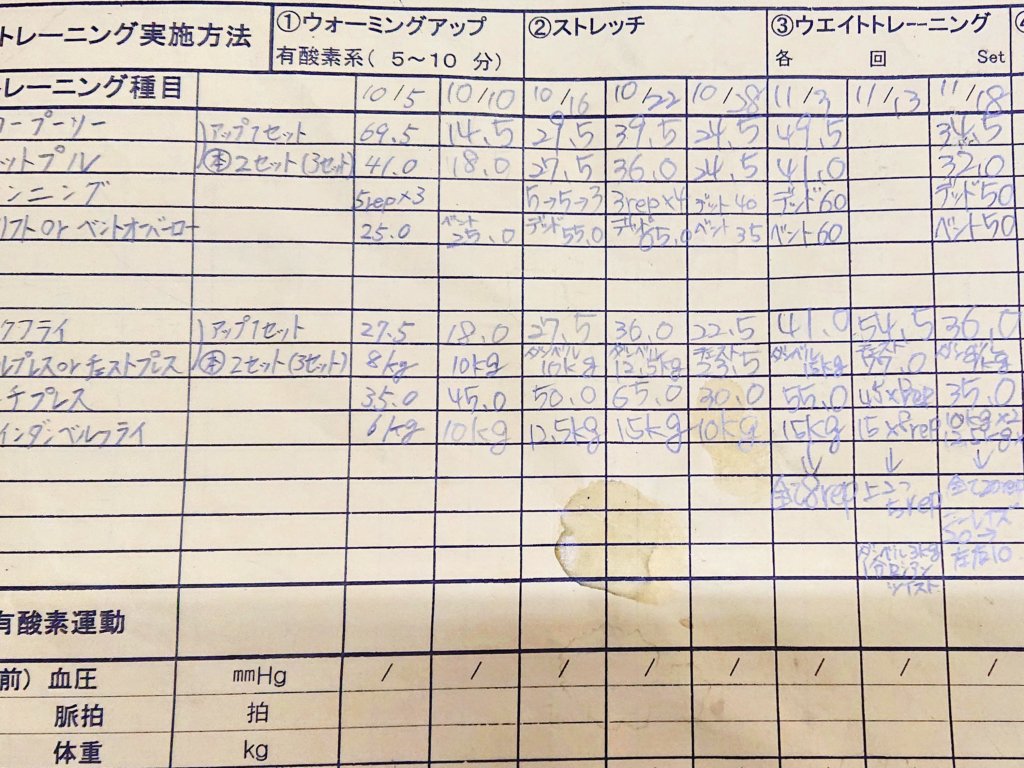 トレーニング実施方法 ①ウォーミングアップ ②ストレッチ ③ウエイトトレーニング
有酸素系( 5～10 分) 各 回 Set
レーニング種目 10/5 10/10 10/16 10/22 10/28 11/3 11/13 11/18
ープーリー アップ1セット 69.5 14.5 29.5 39.5 24.5 49.5 34.5
ットプル 本2セット(3セット) 41.0 18.0 27.5 36.0 24.5 41.0 32.0
ンニング 5rep×3 5→5→3 3rep×4 デッド40 デッド60 デッド50
リフトor ベントオーバーロー 25.0 ベント25.0 デッド55.0 デッド65.0 ベント35 ベント60 ベント50
クフライ アップ1セット 27.5 18.0 27.5 36.0 22.5 41.0 54.5 36.0
ルプレスorチェストプレス 本2セット(3セット) 8kg 10kg ダンベル10kg ダンベル12.5kg チェスト ダンベル チェスト ダンベル
ーチプレス 35.0 45.0 50.0 65.0 30.0 55.0 35.0
インダンベルフライ 6kg 10kg 12.5kg 15kg 10kg 15kg 15×8rep 10kg×2
↓ ↓ ↓
全て8rep 5rep 全て20rep
20→
ダンベル3kg 左右10
ツイスト
有酸素運動
前) 血圧 mmHg / / / / / / / /
脈拍 拍
体重 kg